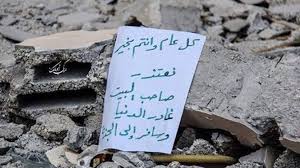 كل عام وانتم بخير
نعتذر
صاحب البيت
غادر الدنيا
وسافر إلى